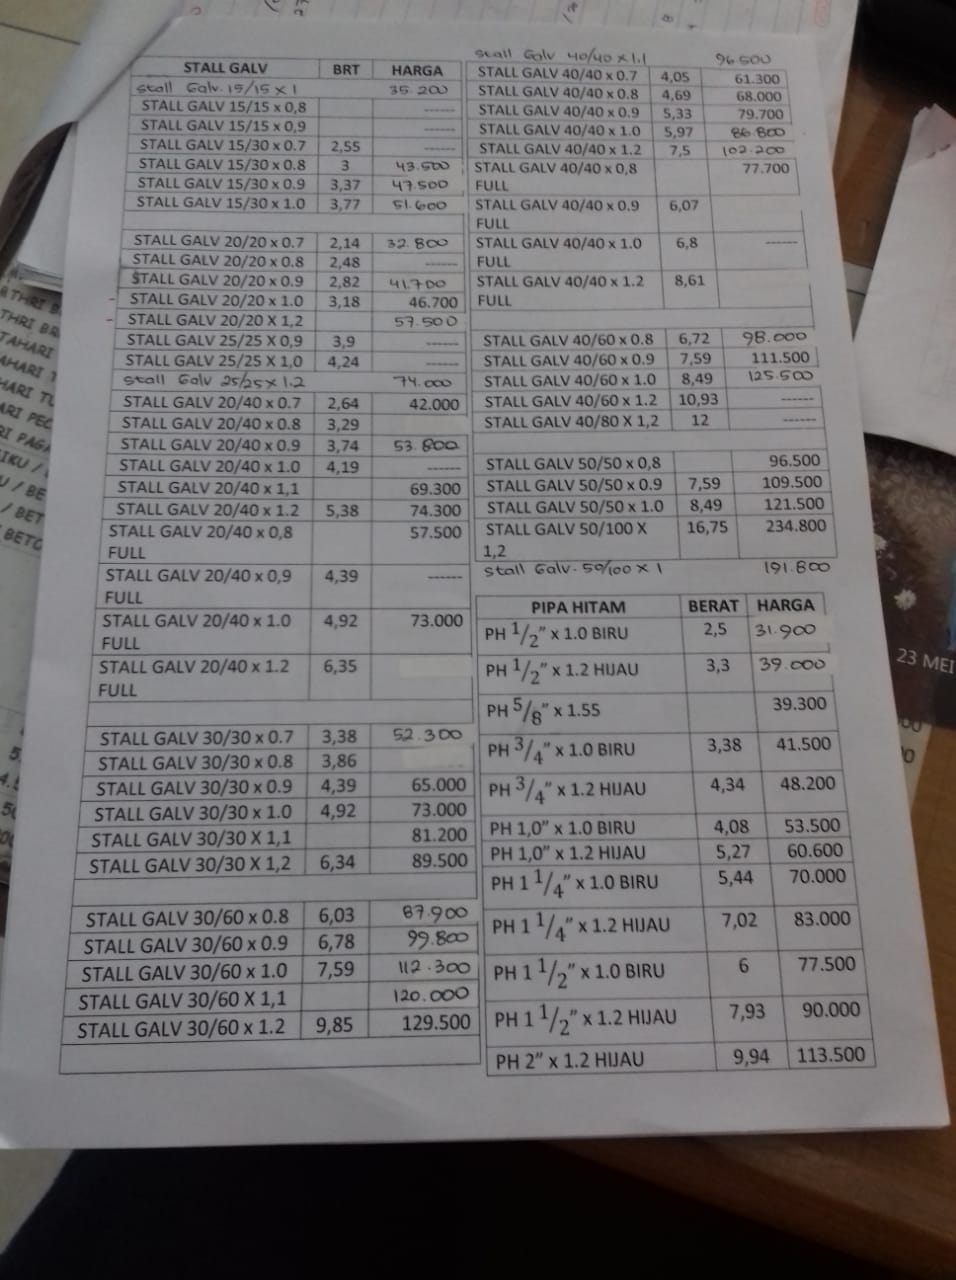 STALL GALV BRT HARGA
Stall Galv. 15/15 x 1 35.200
STALL GALV 15/15 x 0,8 ------
STALL GALV 15/15 x 0,9 ------
STALL GALV 15/30 x 0.7 2,55 ------
STALL GALV 15/30 x 0.8 3 43.500
STALL GALV 15/30 x 0.9 3,37 47.500
STALL GALV 15/30 x 1.0 3,77 51.600
STALL GALV 20/20 x 0.7 2,14 32.800
STALL GALV 20/20 x 0.8 2,48 ------
STALL GALV 20/20 x 0.9 2,82 41.700
STALL GALV 20/20 x 1.0 3,18 46.700
STALL GALV 20/20 X 1,2 57.500
STALL GALV 25/25 X 0,9 3,9 ------
STALL GALV 25/25 X 1,0 4,24 ------
Stall Galv 25/25 x 1.2 74.000
STALL GALV 20/40 x 0.7 2,64 42.000
STALL GALV 20/40 x 0.8 3,29
STALL GALV 20/40 x 0.9 3,74 53.800
STALL GALV 20/40 x 1.0 4,19 ------
STALL GALV 20/40 x 1,1 69.300
STALL GALV 20/40 x 1.2 5,38 74.300
STALL GALV 20/40 x 0,8 57.500
FULL
STALL GALV 20/40 x 0,9 4,39 ------
FULL
STALL GALV 20/40 x 1.0 4,92 73.000
FULL
STALL GALV 20/40 x 1.2 6,35
FULL
STALL GALV 30/30 x 0.7 3,38 52.300
STALL GALV 30/30 x 0.8 3,86
STALL GALV 30/30 x 0.9 4,39 65.000
STALL GALV 30/30 x 1.0 4,92 73.000
STALL GALV 30/30 X 1,1 81.200
STALL GALV 30/30 X 1,2 6,34 89.500
STALL GALV 30/60 x 0.8 6,03 87.900
STALL GALV 30/60 x 0.9 6,78 99.800
STALL GALV 30/60 x 1.0 7,59 112.300
STALL GALV 30/60 X 1,1 120.000
STALL GALV 30/60 x 1.2 9,85 129.500
Stall Galv 40/40 x 1.1 96.500
STALL GALV 40/40 x 0.7 4,05 61.300
STALL GALV 40/40 x 0.8 4,69 68.000
STALL GALV 40/40 x 0.9 5,33 79.700
STALL GALV 40/40 x 1.0 5,97 86.800
STALL GALV 40/40 x 1.2 7,5 102.200
STALL GALV 40/40 x 0,8 77.700
FULL
STALL GALV 40/40 x 0.9 6,07
FULL
STALL GALV 40/40 x 1.0 6,8 ------
FULL
STALL GALV 40/40 x 1.2 8,61
FULL
STALL GALV 40/60 x 0.8 6,72 98.000
STALL GALV 40/60 x 0.9 7,59 111.500
STALL GALV 40/60 x 1.0 8,49 125.500
STALL GALV 40/60 x 1.2 10,93 ------
STALL GALV 40/80 X 1,2 12 ------
STALL GALV 50/50 x 0,8 96.500
STALL GALV 50/50 x 0.9 7,59 109.500
STALL GALV 50/50 x 1.0 8,49 121.500
STALL GALV 50/100 X 16,75 234.800
1,2
Stall Galv. 50/100 x 1 191.800
PIPA HITAM BERAT HARGA
PH 1/2" x 1.0 BIRU 2,5 31.900
PH 1/2" x 1.2 HIJAU 3,3 39.000
PH 5/8" x 1.55 39.300
PH 3/4" x 1.0 BIRU 3,38 41.500
PH 3/4" x 1.2 HIJAU 4,34 48.200
PH 1,0" x 1.0 BIRU 4,08 53.500
PH 1,0" x 1.2 HIJAU 5,27 60.600
PH 1 1/4" x 1.0 BIRU 5,44 70.000
PH 1 1/4" x 1.2 HIJAU 7,02 83.000
PH 1 1/2" x 1.0 BIRU 6 77.500
PH 1 1/2" x 1.2 HIJAU 7,93 90.000
PH 2" x 1.2 HIJAU 9,94 113.500
23 MEI